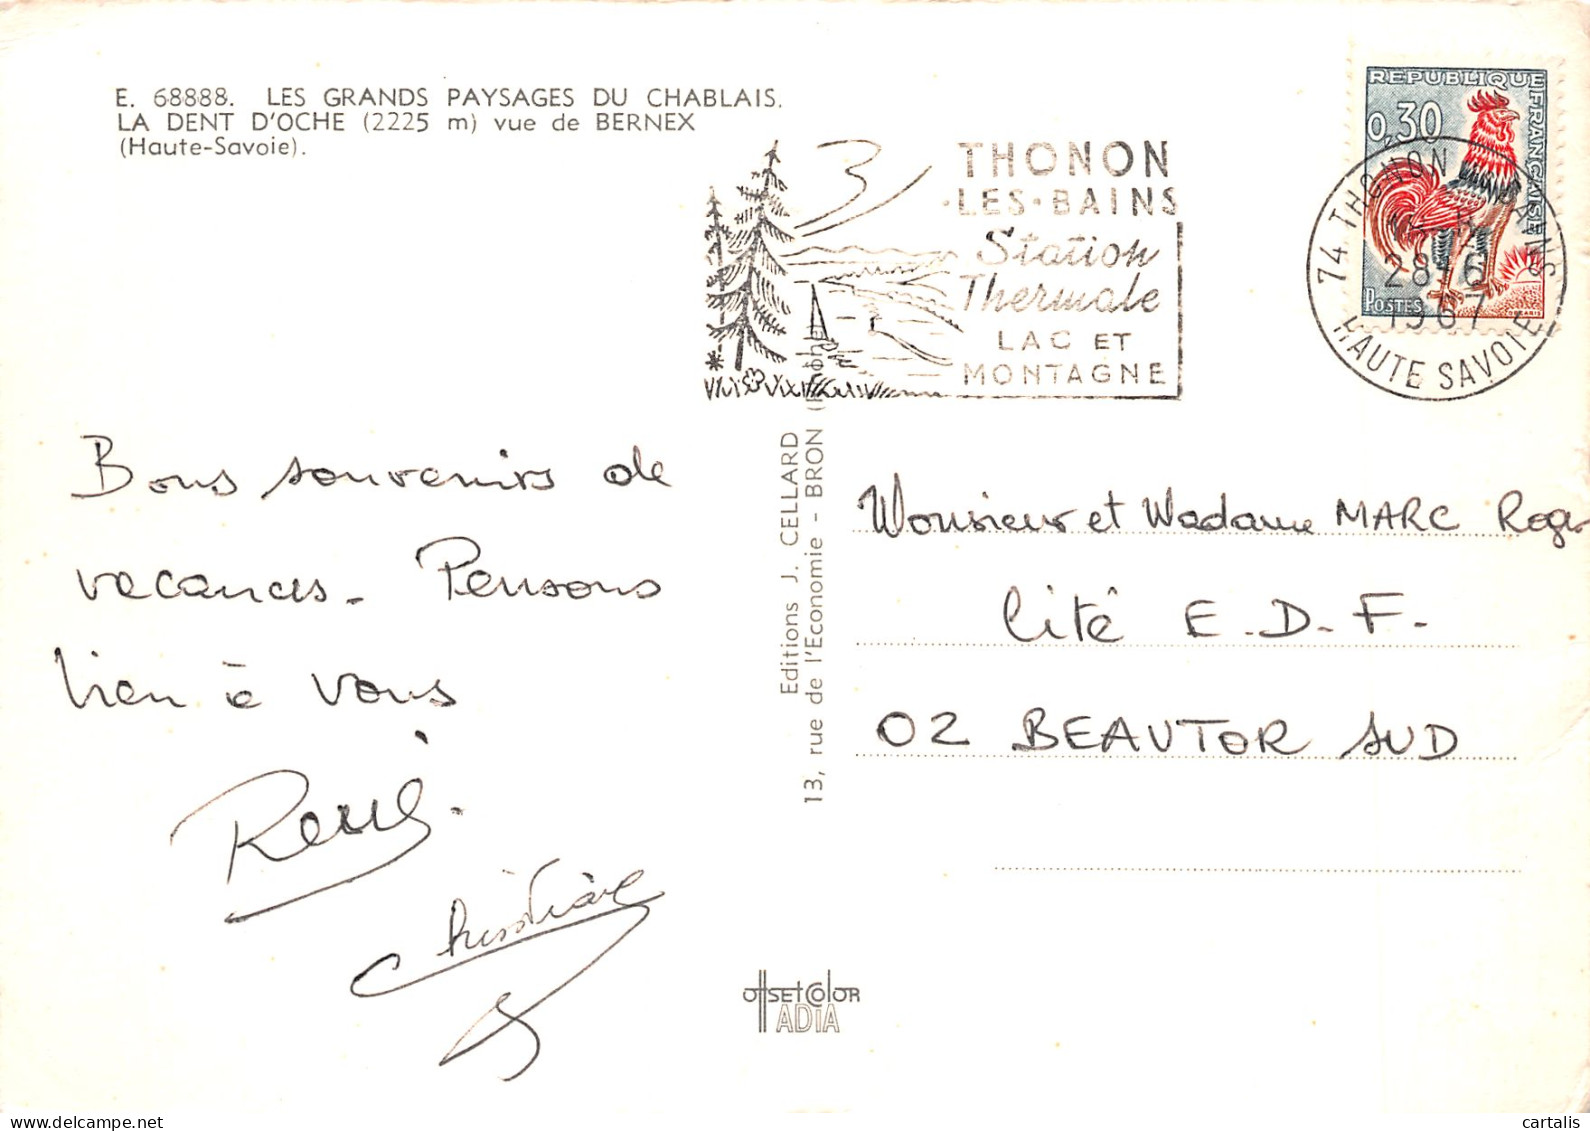 E. 68888. LES GRANDS PAYSAGES DU CHABLAIS.
LA DENT D'OCHE (2225 m) vue de BERNEX
(Haute-Savoie).
THONON
·LES·BAINS
Station
Thermale
LAC ET
MONTAGNE
REPUBLIQUE FRANÇAISE
0,30
POSTES
74 THONON BAINS
28-6
1967
HAUTE SAVOIE
Bons souvenirs de
vacances. Pensons
bien à vous
René.
Christiane
Editions J. CELLARD
13, rue de l'Economie - BRON (Rhône)
Monsieur et Madame MARC Roger
Cité E.D.F.
02 BEAUTOR SUD
OffSET COlOR
ADIA
cartalis